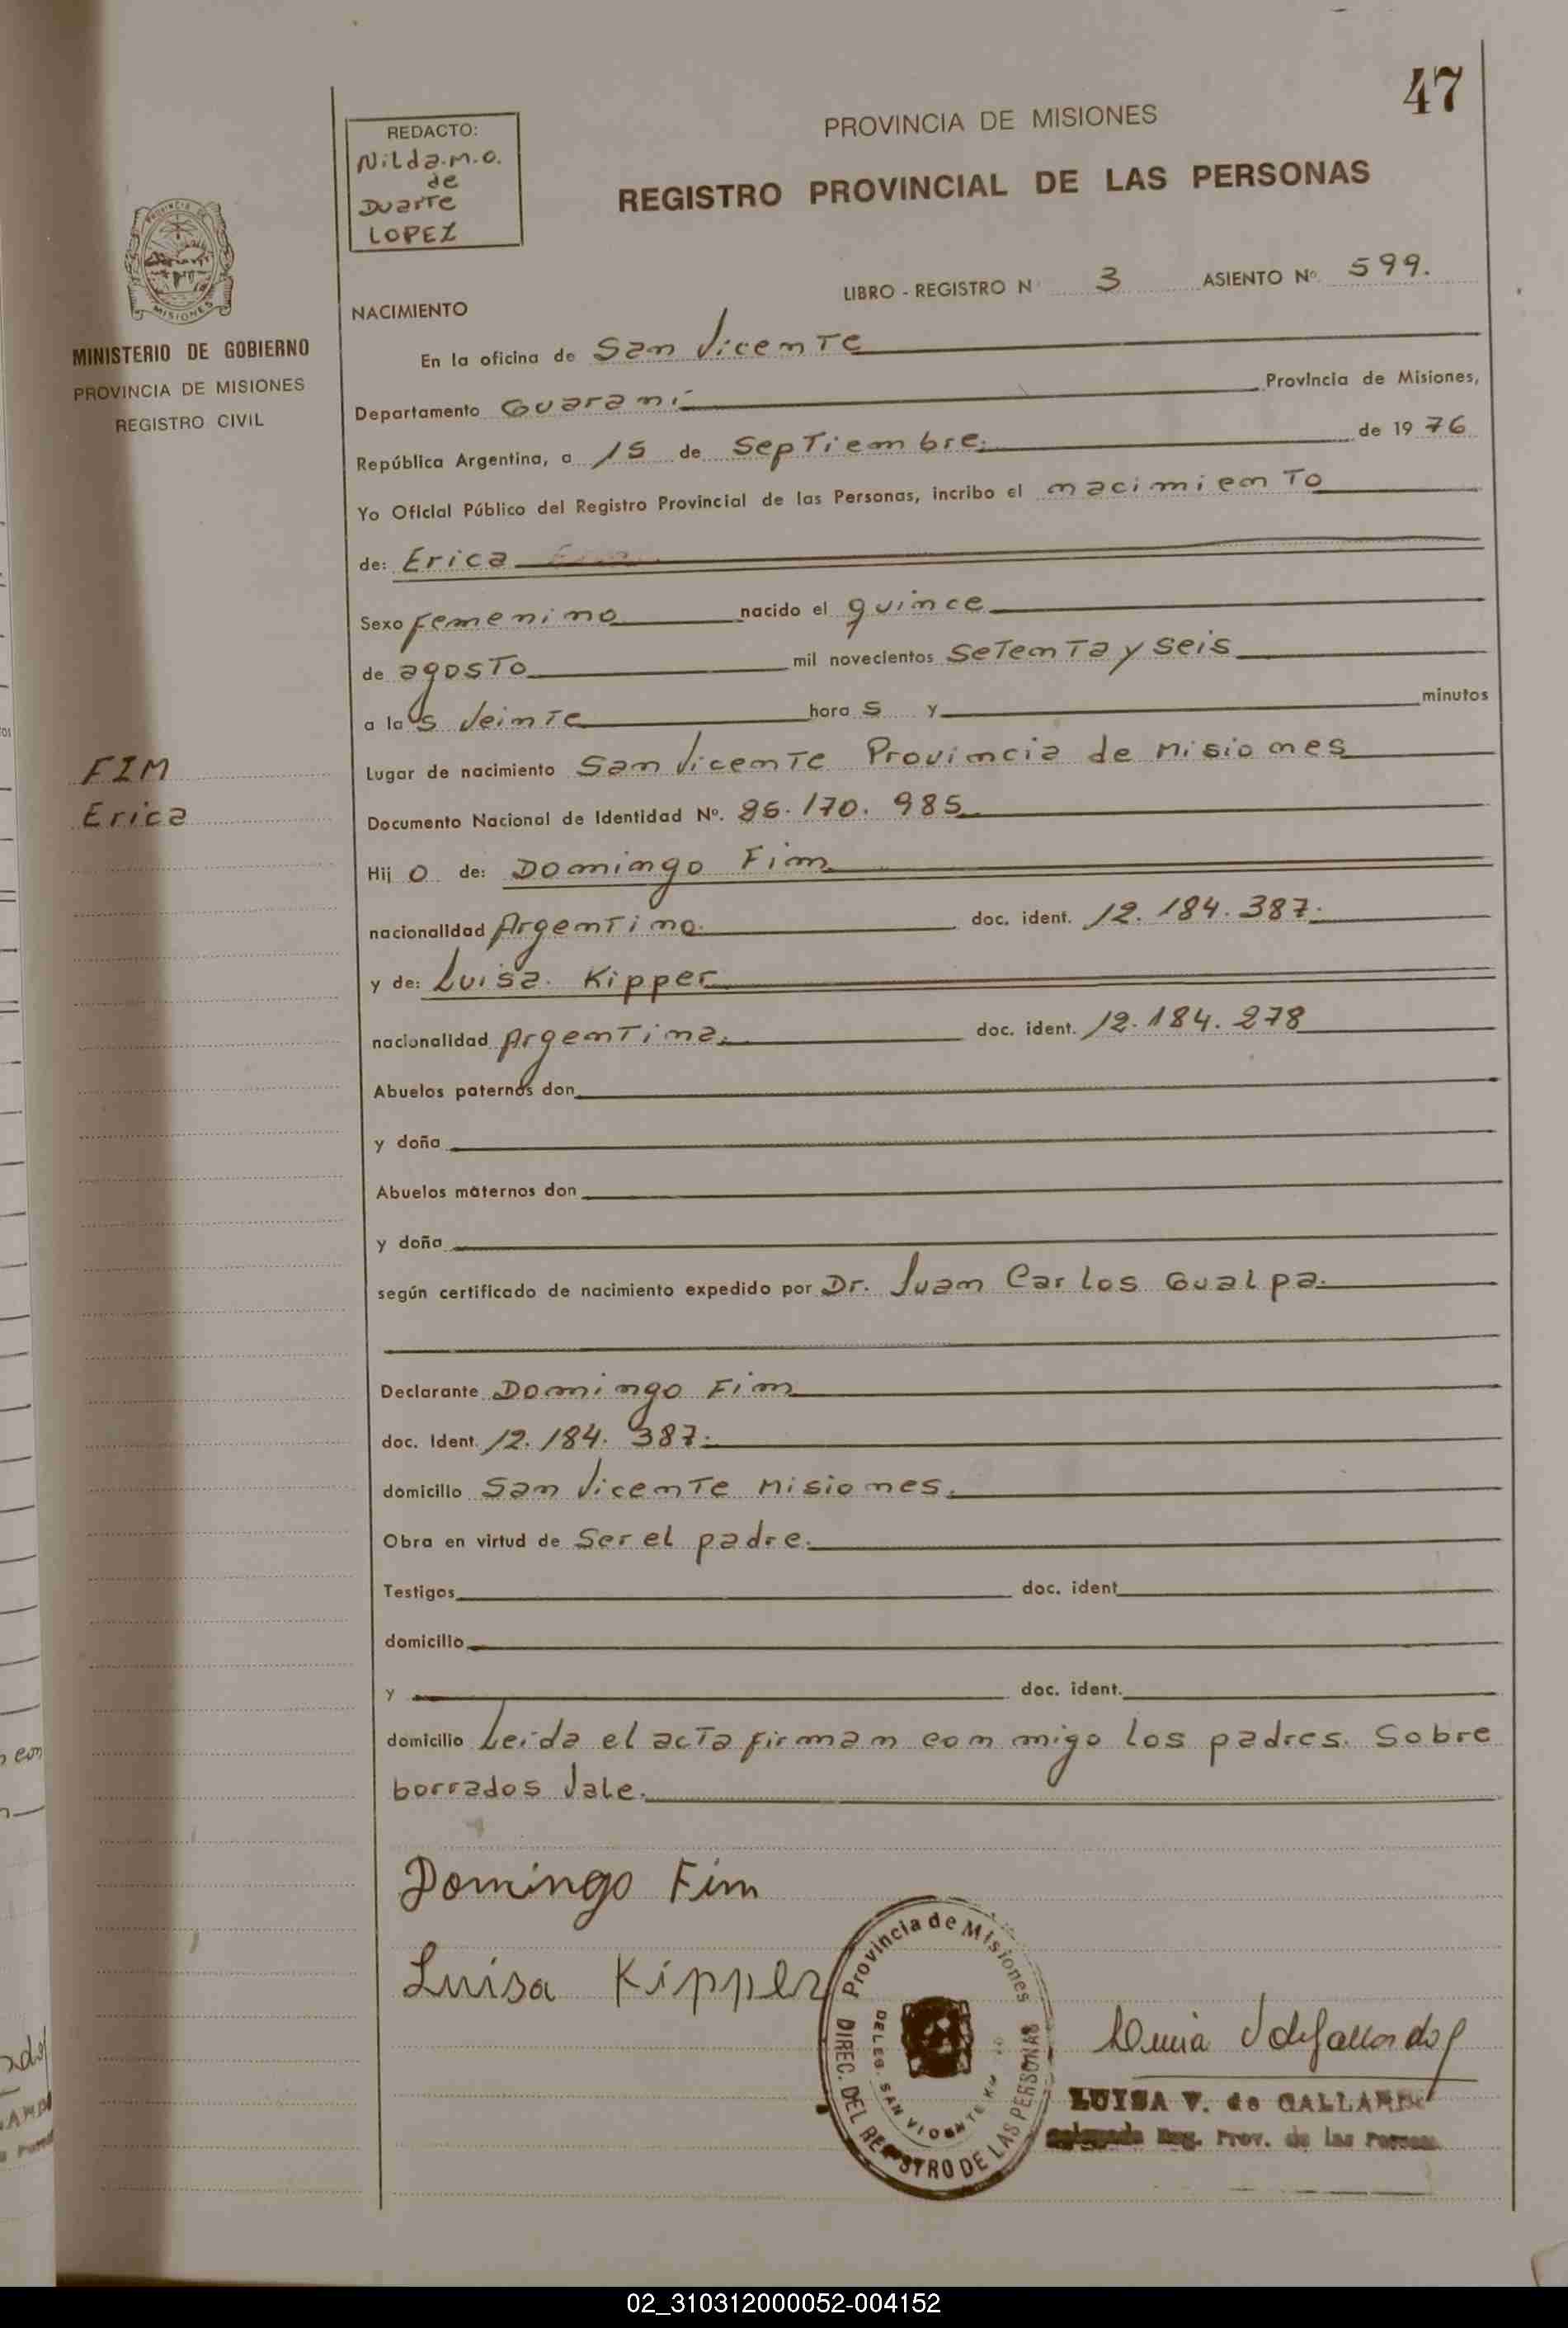 47
REDACTO:
Nilda.M.O.
de
Duarte
LOPEZ
PROVINCIA DE MISIONES
REGISTRO PROVINCIAL DE LAS PERSONAS
MISIONES
MINISTERIO DE GOBIERNO
PROVINCIA DE MISIONES
REGISTRO CIVIL
LIBRO - REGISTRO N 3 ASIENTO Nº 599.
NACIMIENTO
En la oficina de San Vicente
Departamento Guaraní Provincia de Misiones,
República Argentina, a 15 de Septiembre. de 19 76
Yo Oficial Público del Registro Provincial de las Personas, incribo el nacimiento
de: Erica
Sexo femenino nacido el quince
de agosto mil novecientos setenta y seis
a las veinte horas y minutos
Lugar de nacimiento San Vicente Provincia de Misiones
FIM
Erica
Documento Nacional de Identidad Nº. 25.170.985
Hijo de: Domingo Fim
nacionalidad Argentino. doc. ident. 12.184.387.
y de: Luisa. Kipper
nacionalidad Argentina. doc. ident. 12.184.278
Abuelos paternos don
y doña
Abuelos maternos don
y doña
según certificado de nacimiento expedido por Dr. Juan Carlos Gualpa.
Declarante Domingo Fim
doc. Ident. 12.184.387.
domicilio San Vicente Misiones.
Obra en virtud de Ser el padre.
Testigos doc. ident
domicilio
y doc. ident.
domicilio Leída el acta firman conmigo los padres. Sobre
borrados Vale.
Domingo Fim
Luisa Kipper
Provincia de Misiones
DIREC. DEL REGISTRO DE LAS PERSONAS
DELEG. SAN VICENTE KM
LUISA V. de GALLARDO
Reg. Prov. de las Personas
02_310312000052-004152